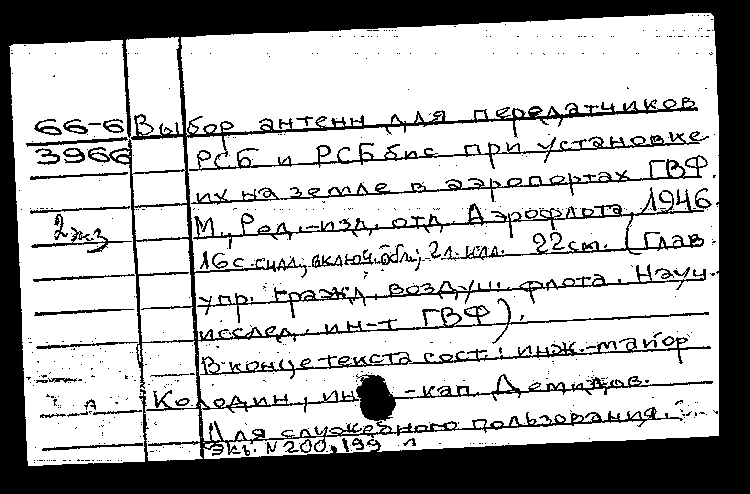 66-6 Выбор антенн для передатчиков
3966 РСБ и РСБбис при установке
их на земле в аэропортах ГВФ.
2 экз М., Ред.-изд. отд. Аэрофлота, 1946.
16 с. с илл., включ. обл.; 2 л. илл. 22 см. (Глав.
упр. гражд. воздуш. флота. Науч.
исслед. ин-т ГВФ).
В конце текста сост.: инж.-майор
А Колодин, инж-кап Демидов.
Для служебного пользования.
Экз. N 200, 199